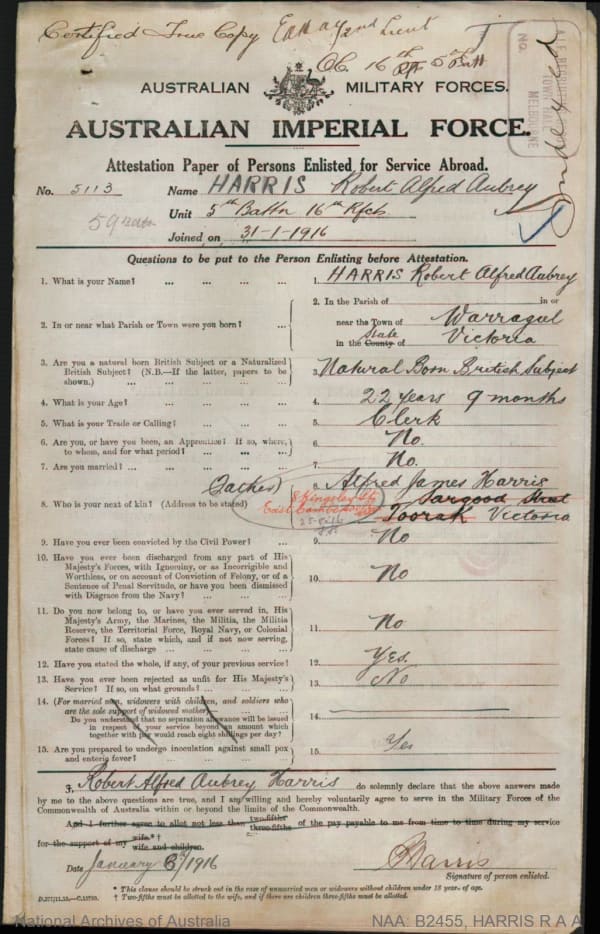 Certified True Copy
2nd Lieut
O.C. 16th Rft 5th Batt
AUSTRALIAN MILITARY FORCES.
A.I.F.
TOWN HALL
MELBOURNE
No.
Indexed
AUSTRALIAN IMPERIAL FORCE.
Attestation Paper of Persons Enlisted for Service Abroad.
No. 5113 Name HARRIS Robert Alfred Aubrey
59
Unit 5th Battn 16th Rfcts
Joined on 31-1-1916
Questions to be put to the Person Enlisting before Attestation.
1. What is your Name? ... ... ... ... 1. HARRIS Robert Alfred Aubrey
2. In or near what Parish or Town were you born? ... 2. In the Parish of in or
near the Town of Warragul
in the County State of Victoria
3. Are you a natural born British Subject or a Naturalized
British Subject? (N.B.—If the latter, papers to be
shown.) ... ... ... ... 3. Natural Born British Subject
4. What is your Age? ... ... ... ... 4. 22 years 9 months
5. What is your Trade or Calling? ... ... ... 5. Clerk
6. Are you, or have you been, an Apprentice? If so, where,
to whom, and for what period? ... ... ... 6. No.
7. Are you married? ... ... ... ... 7. No.
8. Who is your next of kin? (Address to be stated) (Father) 8. Alfred James Harris
Sargood Street
Toorak Victoria
8 Kingsley St
East Camberwell
9. Have you ever been convicted by the Civil Power? ... 9. No
10. Have you ever been discharged from any part of His
Majesty's Forces, with Ignominy, or as Incorrigible and
Worthless, or on account of Conviction of Felony, or of a
Sentence of Penal Servitude, or have you been dismissed
with Disgrace from the Navy? ... ... 10. No
11. Do you now belong to, or have you ever served in, His
Majesty's Army, the Marines, the Militia, the Militia
Reserve, the Territorial Force, Royal Navy, or Colonial
Forces? If so, state which, and if not now serving,
state cause of discharge ... ... ... 11. No
12. Have you stated the whole, if any, of your previous service? 12. Yes.
13. Have you ever been rejected as unfit for His Majesty's
Service? If so, on what grounds? ... ... ... 13. No
14. (For married men, widowers with children, and soldiers who
are the sole support of widowed mother—
Do you understand that no separation allowance will be issued
in respect of your service beyond an amount which
together with pay would reach eight shillings per day? 14.
15. Are you prepared to undergo inoculation against small pox
and enteric fever? ... ... ... ... 15. Yes
I, Robert Alfred Aubrey Harris do solemnly declare that the above answers made
by me to the above questions are true, and I am willing and hereby voluntarily agree to serve in the Military Forces of the
Commonwealth of Australia within or beyond the limits of the Commonwealth.
And I further agree to allot not less than two-fifths three-fifths of the pay payable to me from time to time during my service
for the support of my wife.*† wife and children.
Date January 6th/1916 Harris
Signature of person enlisted.
* This clause should be struck out in the case of unmarried men or widowers without children under 18 years of age.
† Two-fifths must be allotted to the wife, and if there are children three-fifths must be allotted.
National Archives of Australia NAA: B2455, HARRIS R A A